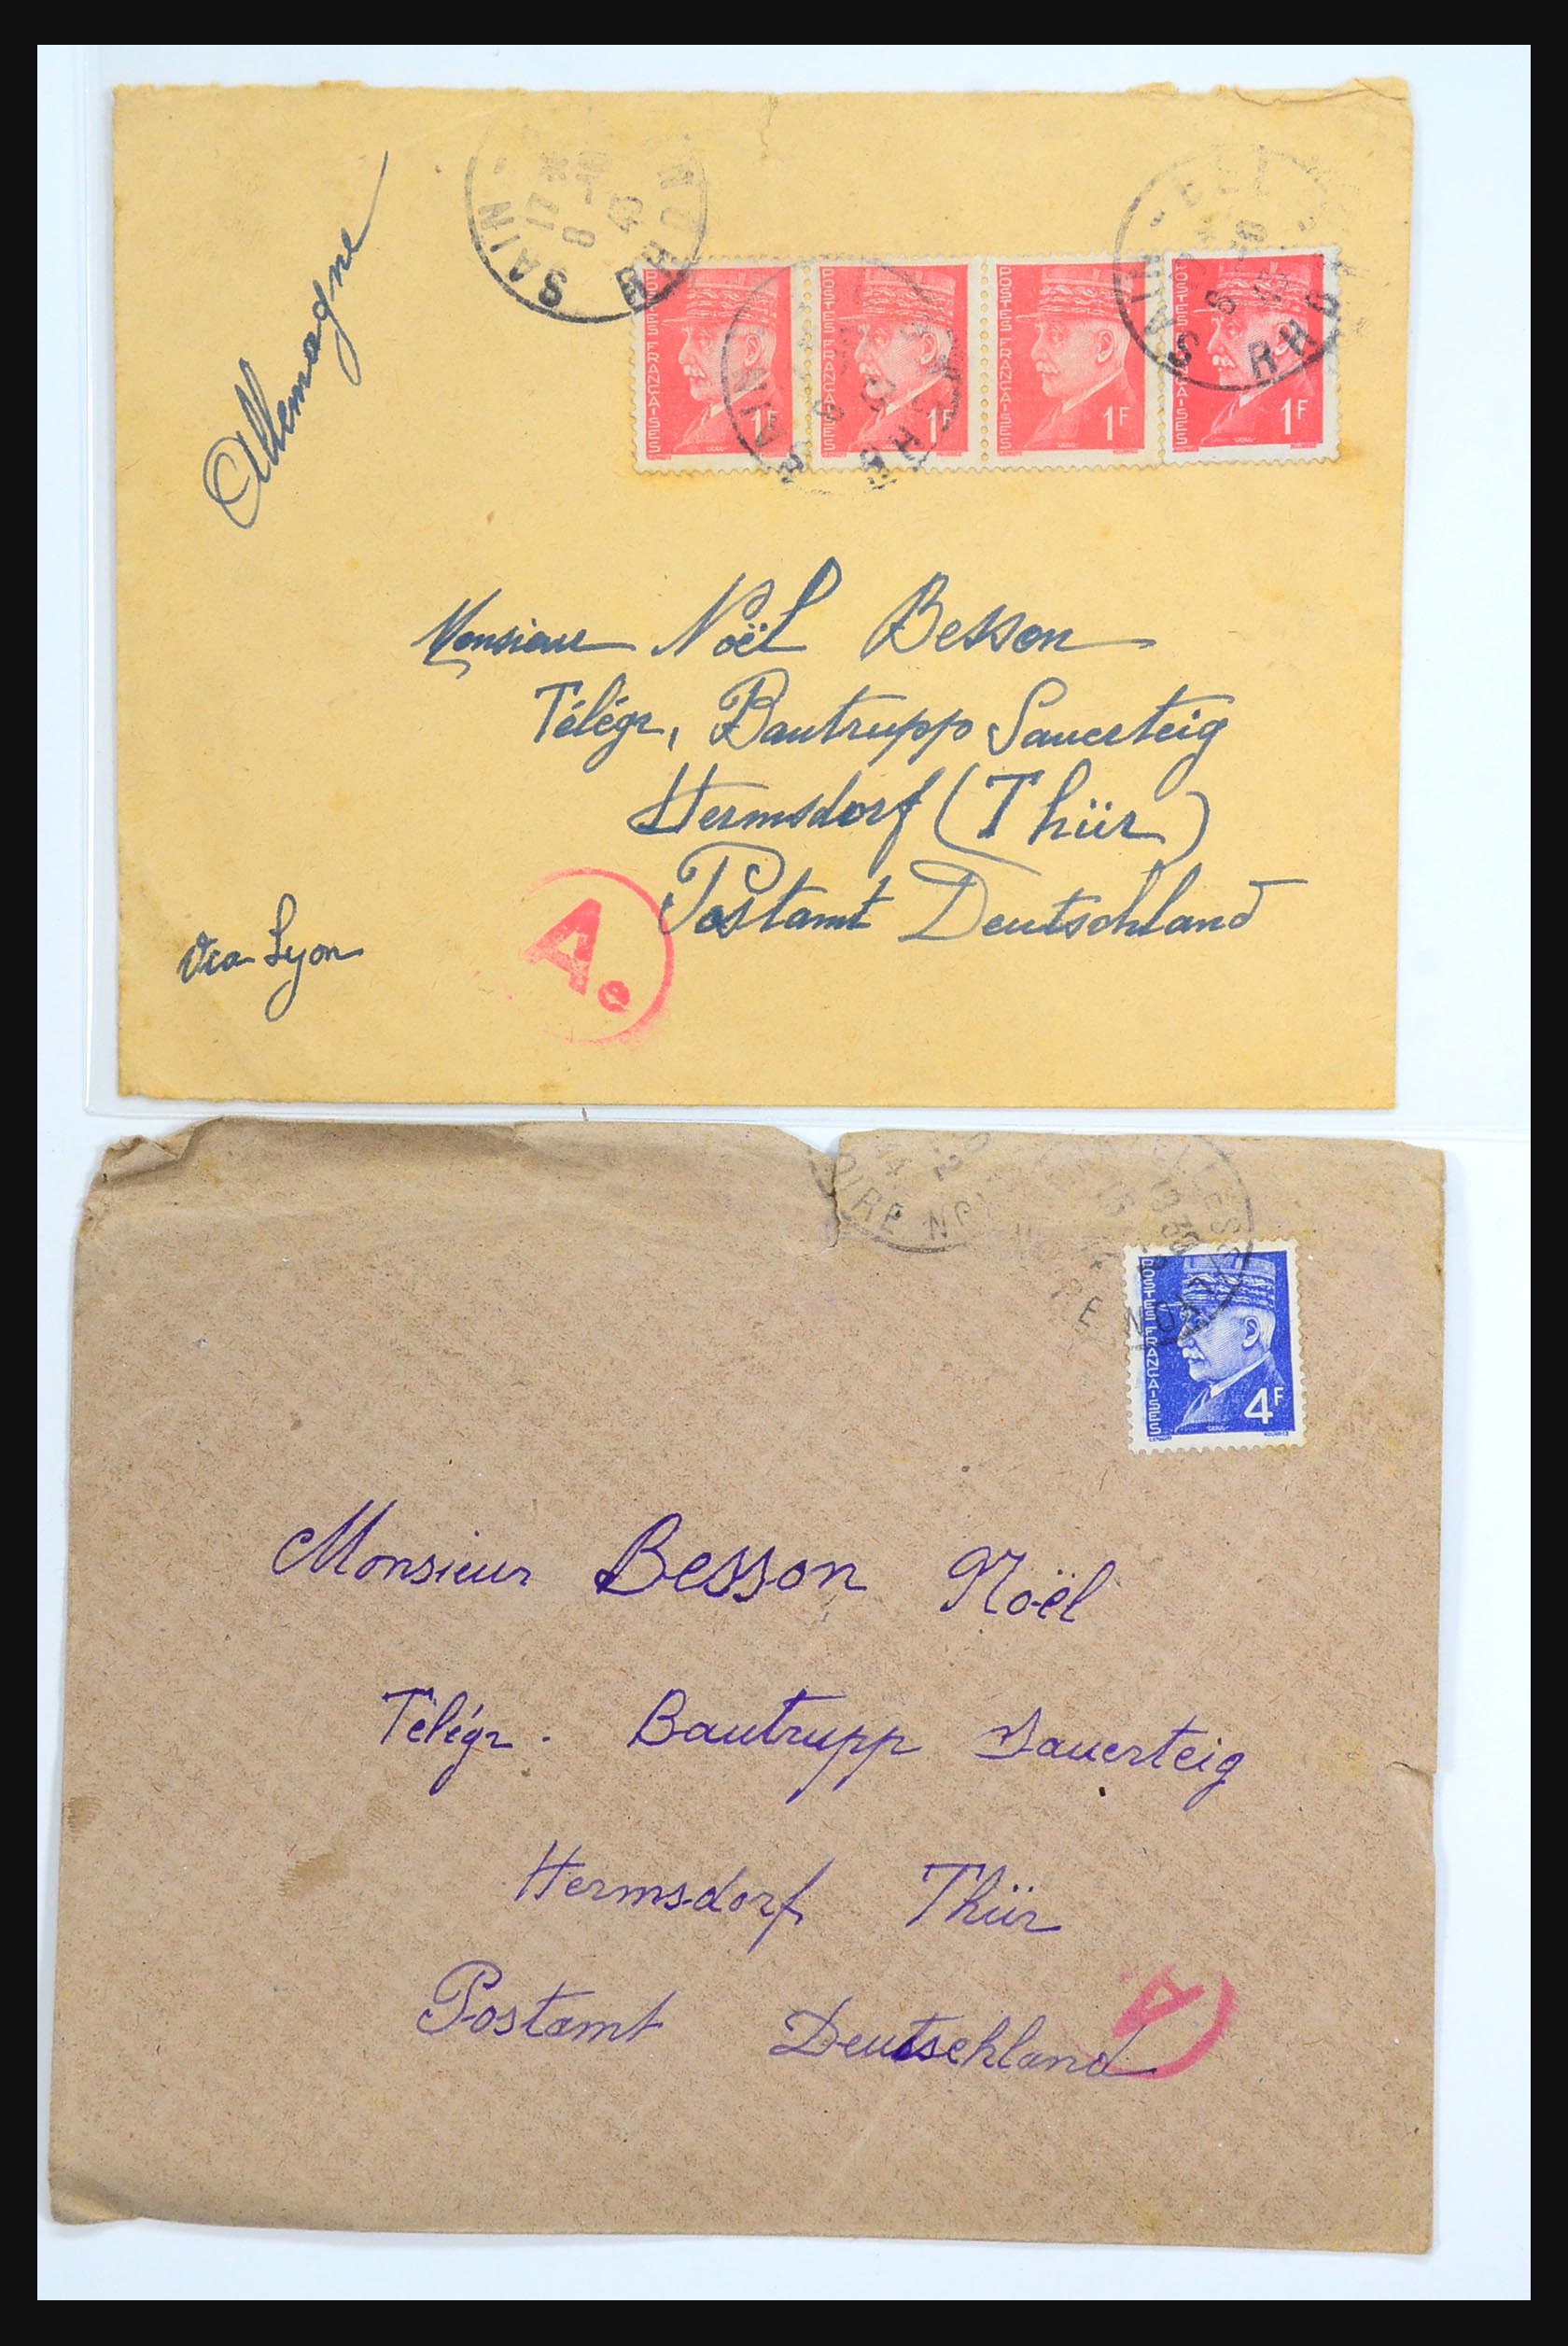 Allemagne
SAIN
17
8 - 10
43
RHON
SAIN
RHON
SAIN - BEL
8
RHON
POSTES FRANÇAISES
1F
POSTES FRANÇAISES
1F
POSTES FRANÇAISES
1F
POSTES FRANÇAISES
1F
Monsieur Noël Besson
Télégr, Bautrupp Sauerteig
Hermsdorf (Thür)
Postamt Deutschland
A.
Via Lyon
POSTES FRANÇAISES
4F
Monsieur Besson Noël
Télégr. Bautrupp Sauerteig
Hermsdorf Thür
Postamt Deutschland
A